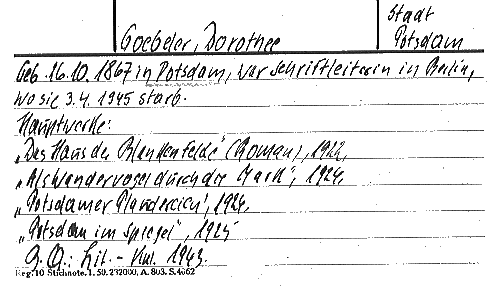 Stadt
Goebeler, Dorothee Potsdam
Geb. 16.10.1867 in Potsdam, war Schriftleiterin in Berlin,
wo sie 3.4.1945 starb.
Hauptwerke:
„Das Haus der Blankenfelde“ (Roman), 1922,
„Als Wandervogel durch die Mark“, 1924,
„Potsdamer Plauderein“, 1924,
„Potsdam im Spiegel“, 1925
G.Q.: Lit.-Kal. 1943.
Reg. 10 Stichnote. 1. 50. 232000, A. 803. S. 4662